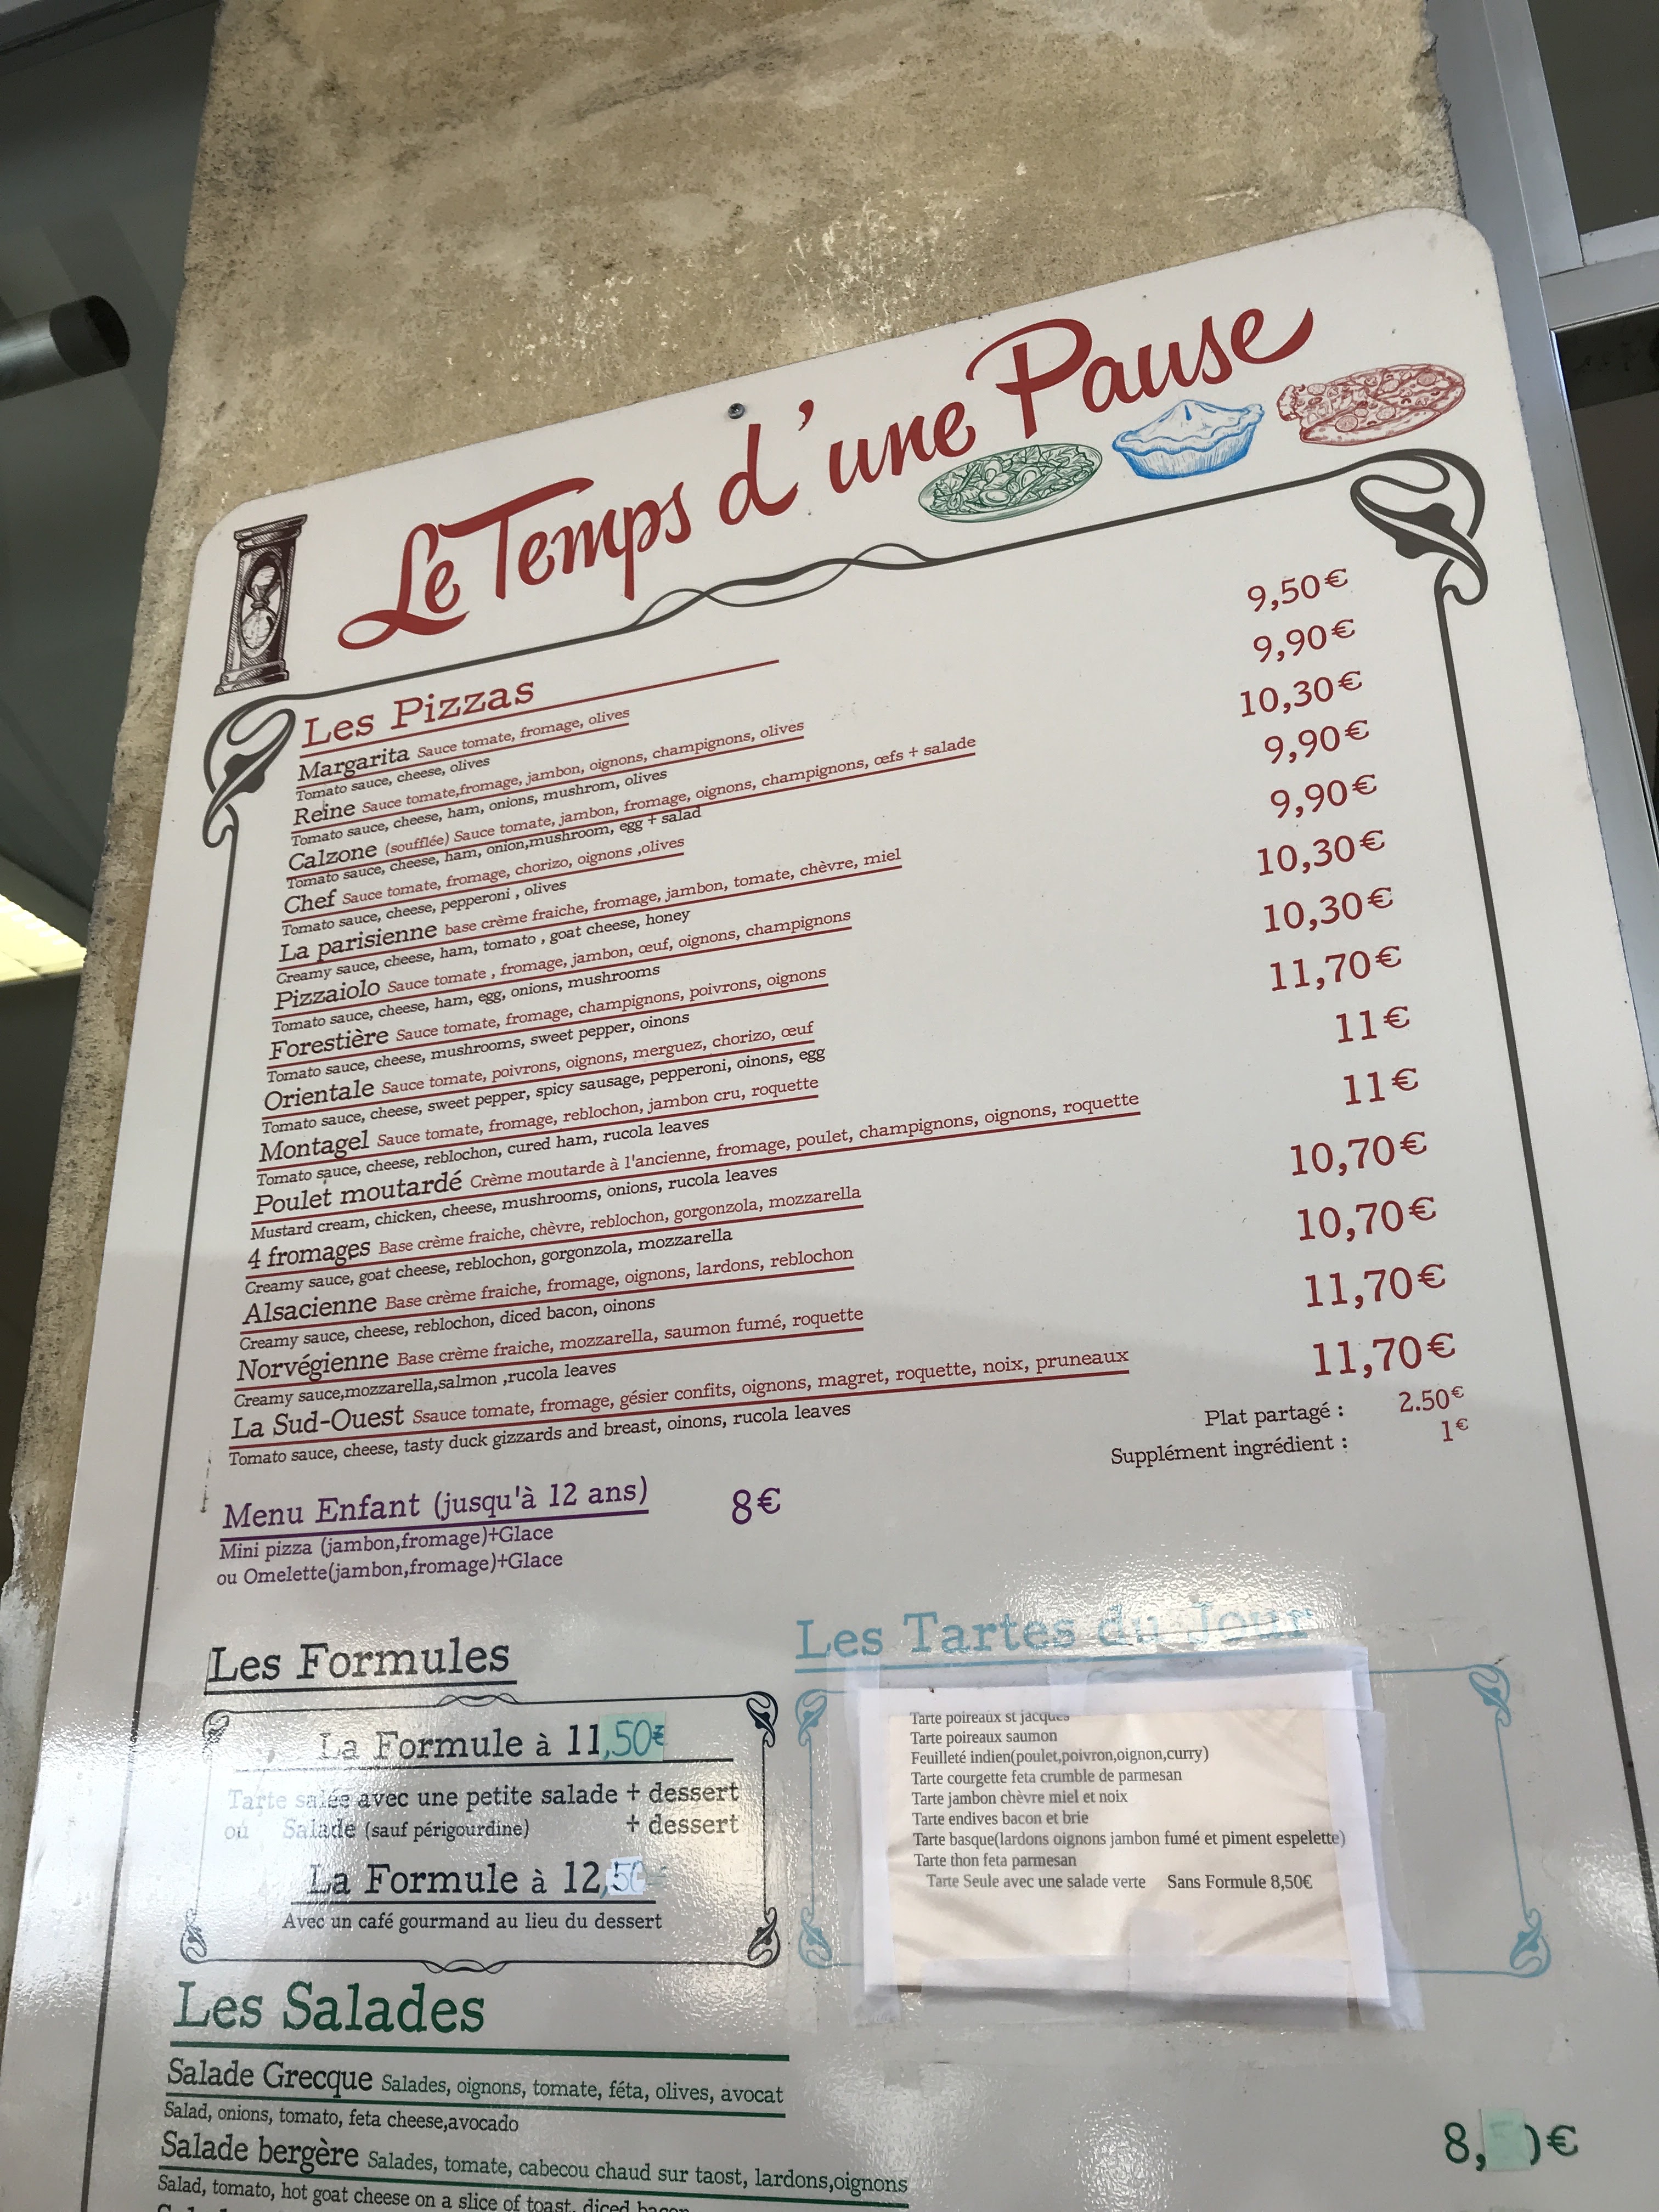 Le Temps d'une Pause
Les Pizzas
Margarita Sauce tomate, fromage, olives 9,50€
Tomato sauce, cheese, olives
Reine Sauce tomate,fromage, jambon, oignons, champignons, olives 9,90€
Tomato sauce, cheese, ham, onions, mushrom, olives
Calzone (soufflée) Sauce tomate, jambon, fromage, oignons, champignons, œfs + salade 10,30€
Tomato sauce, cheese, ham, onion,mushroom, egg + salad
Chef Sauce tomate, fromage, chorizo, oignons ,olives 9,90€
Tomato sauce, cheese, pepperoni , olives
La parisienne base crème fraiche, fromage, jambon, tomate, chèvre, miel 9,90€
Creamy sauce, cheese, ham, tomato , goat cheese, honey
Pizzaiolo Sauce tomate , fromage, jambon, œuf, oignons, champignons 10,30€
Tomato sauce, cheese, ham, egg, onions, mushrooms
Forestière Sauce tomate, fromage, champignons, poivrons, oignons 10,30€
Tomato sauce, cheese, mushrooms, sweet pepper, oinons
Orientale Sauce tomate, poivrons, oignons, merguez, chorizo, œuf 11,70€
Tomato sauce, cheese, sweet pepper, spicy sausage, pepperoni, oinons, egg
Montagel Sauce tomate, fromage, reblochon, jambon cru, roquette 11€
Tomato sauce, cheese, reblochon, cured ham, rucola leaves
Poulet moutardé Crème moutarde à l'ancienne, fromage, poulet, champignons, oignons, roquette 11€
Mustard cream, chicken, cheese, mushrooms, onions, rucola leaves
4 fromages Base crème fraiche, chèvre, reblochon, gorgonzola, mozzarella 10,70€
Creamy sauce, goat cheese, reblochon, gorgonzola, mozzarella
Alsacienne Base crème fraiche, fromage, oignons, lardons, reblochon 10,70€
Creamy sauce, cheese, reblochon, diced bacon, oinons
Norvégienne Base crème fraiche, mozzarella, saumon fumé, roquette 11,70€
Creamy sauce,mozzarella,salmon ,rucola leaves
La Sud-Ouest Ssauce tomate, fromage, gésier confits, oignons, magret, roquette, noix, pruneaux 11,70€
Tomato sauce, cheese, tasty duck gizzards and breast, oinons, rucola leaves
Plat partagé : 2.50€
Supplément ingrédient : 1€
Menu Enfant (jusqu'à 12 ans) 8€
Mini pizza (jambon,fromage)+Glace
ou Omelette(jambon,fromage)+Glace
Les Formules
La Formule à 11,50€
Tarte salée avec une petite salade + dessert
ou Salade (sauf périgourdine) + dessert
La Formule à 12,50
Avec un café gourmand au lieu du dessert
Les Tartes du Jour
Tarte poireaux st jacques
Tarte poireaux saumon
Feuilleté indien(poulet,poivron,oignon,curry)
Tarte courgette feta crumble de parmesan
Tarte jambon chèvre miel et noix
Tarte endives bacon et brie
Tarte basque(lardons oignons jambon fumé et piment espelette)
Tarte thon feta parmesan
Tarte Seule avec une salade verte Sans Formule 8,50€
Les Salades
Salade Grecque Salades, oignons, tomate, féta, olives, avocat
Salad, onions, tomato, feta cheese,avocado
Salade bergère Salades, tomate, cabecou chaud sur taost, lardons,oignons
Salad, tomato, hot goat cheese on a slice of toast, diced bacon